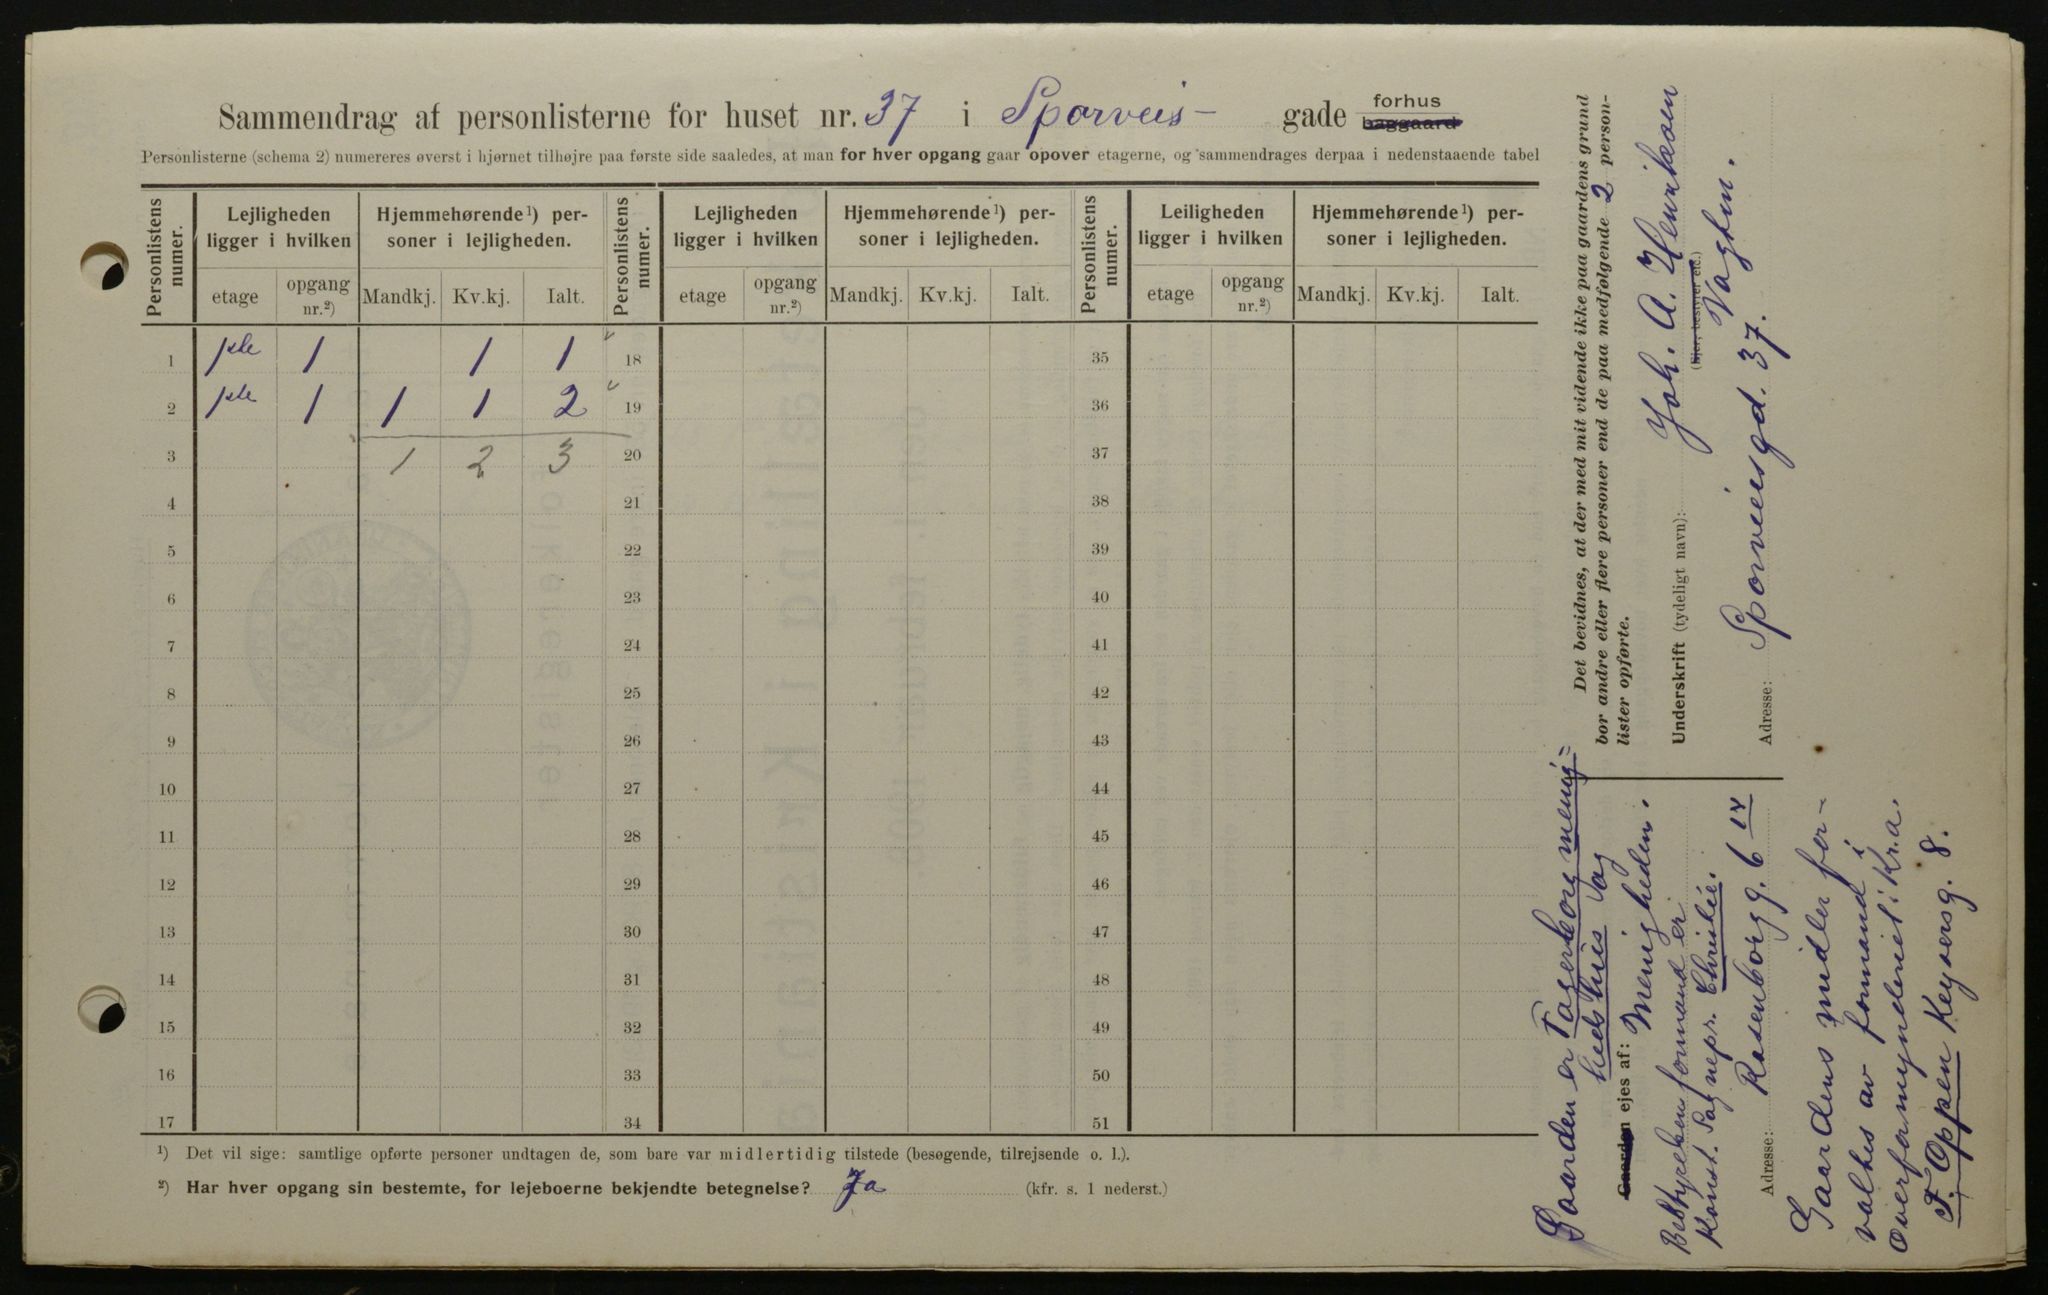 Sammendrag af personlisterne for huset nr. 37 i Sporveis- gade forhus
baggaard
Personlisterne (schema 2) numereres øverst i hjørnet tilhøjre paa første side saaledes, at man for hver opgang gaar opover etagerne, og sammendrages derpaa i nedenstaaende tabel
Personlistens numer. Lejligheden ligger i hvilken Hjemmehørende¹) personer i lejligheden. Personlistens numer. Lejligheden ligger i hvilken Hjemmehørende¹) personer i lejligheden. Personlistens numer. Leiligheden ligger i hvilken Hjemmehørende¹) personer i lejligheden.
etage opgang nr.²) Mandkj. Kv.kj. Ialt. etage opgang nr.²) Mandkj. Kv.kj. Ialt. etage opgang nr.²) Mandkj. Kv.kj. Ialt.
1 1ste 1 1 1 18 35
2 1ste 1 1 1 2 19 36
3 1 2 3 20 37
4 21 38
5 22 39
6 23 40
7 24 41
8 25 42
9 26 43
10 27 44
11 28 45
12 29 46
13 30 47
14 31 48
15 32 49
16 33 50
17 34 51
¹) Det vil sige: samtlige opførte personer undtagen de, som bare var midlertidig tilstede (besøgende, tilrejsende o. l.).
²) Har hver opgang sin bestemte, for lejeboerne bekjendte betegnelse? Ja (kfr. s. 1 nederst.)
Det bevidnes, at der med mit vidende ikke paa gaardens grund
bor andre eller flere personer end de paa medfølgende 2 person-
lister opførte.
Underskrift (tydeligt navn): Joh. A. Henriksen
(Ejer, bestyrer etc.) Vagtm.
Adresse: Sporveisgd. 37.
Gaarden er Fagerborg menig=
heds hus og
Gaarden ejes af: Menigheden.
Bestyrelsen formand er
Konst. Sognepr. Christie.
Rosenborgg. 6 IV
Adresse:
Gaardens midler for-
valtes av formand i
Overformynderiet i Kr.a.
F. Oppen Keysersg. 8.